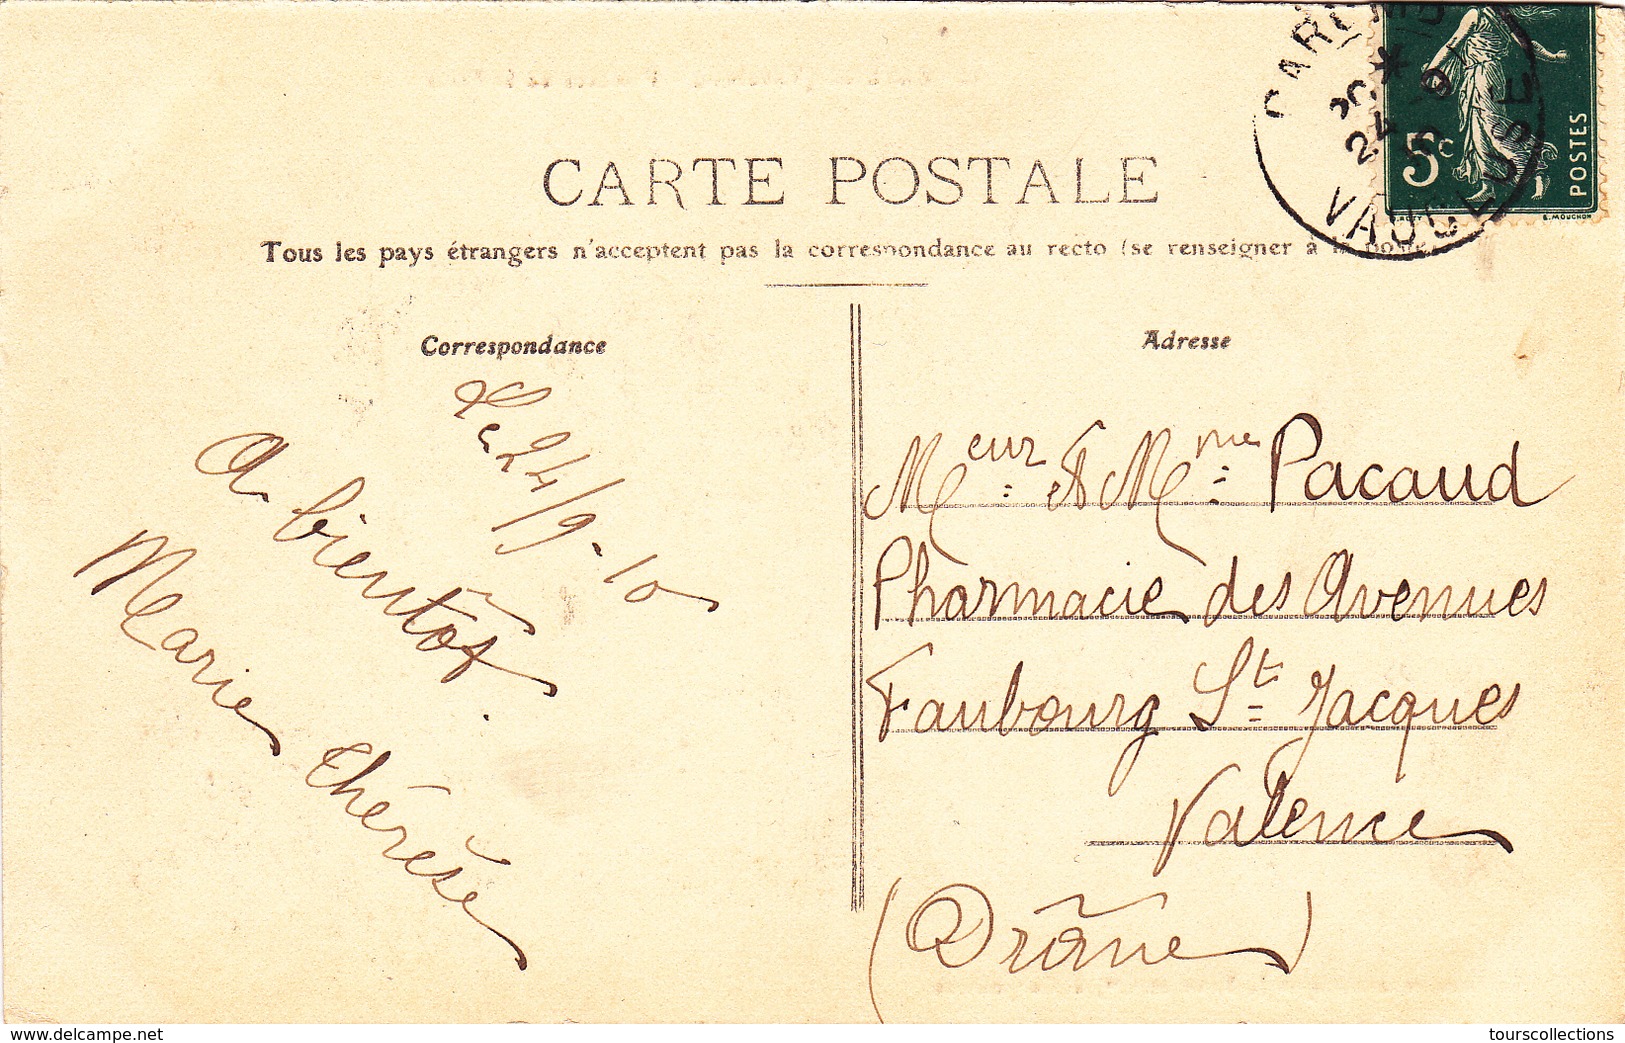 CARTE POSTALE
Tous les pays étrangers n'acceptent pas la correspondance au recto (se renseigner à la poste)
Correspondance
Le 24/9-10
A bientôt.
Marie Thérèse
Adresse
Meur & Mme Pacaud
Pharmacie des Avenues
Faubourg St Jacques
Valence
(Drôme)
VAUCLUSE
5c
POSTES
E. MOUCHON
www.delcampe.net
tourscollections